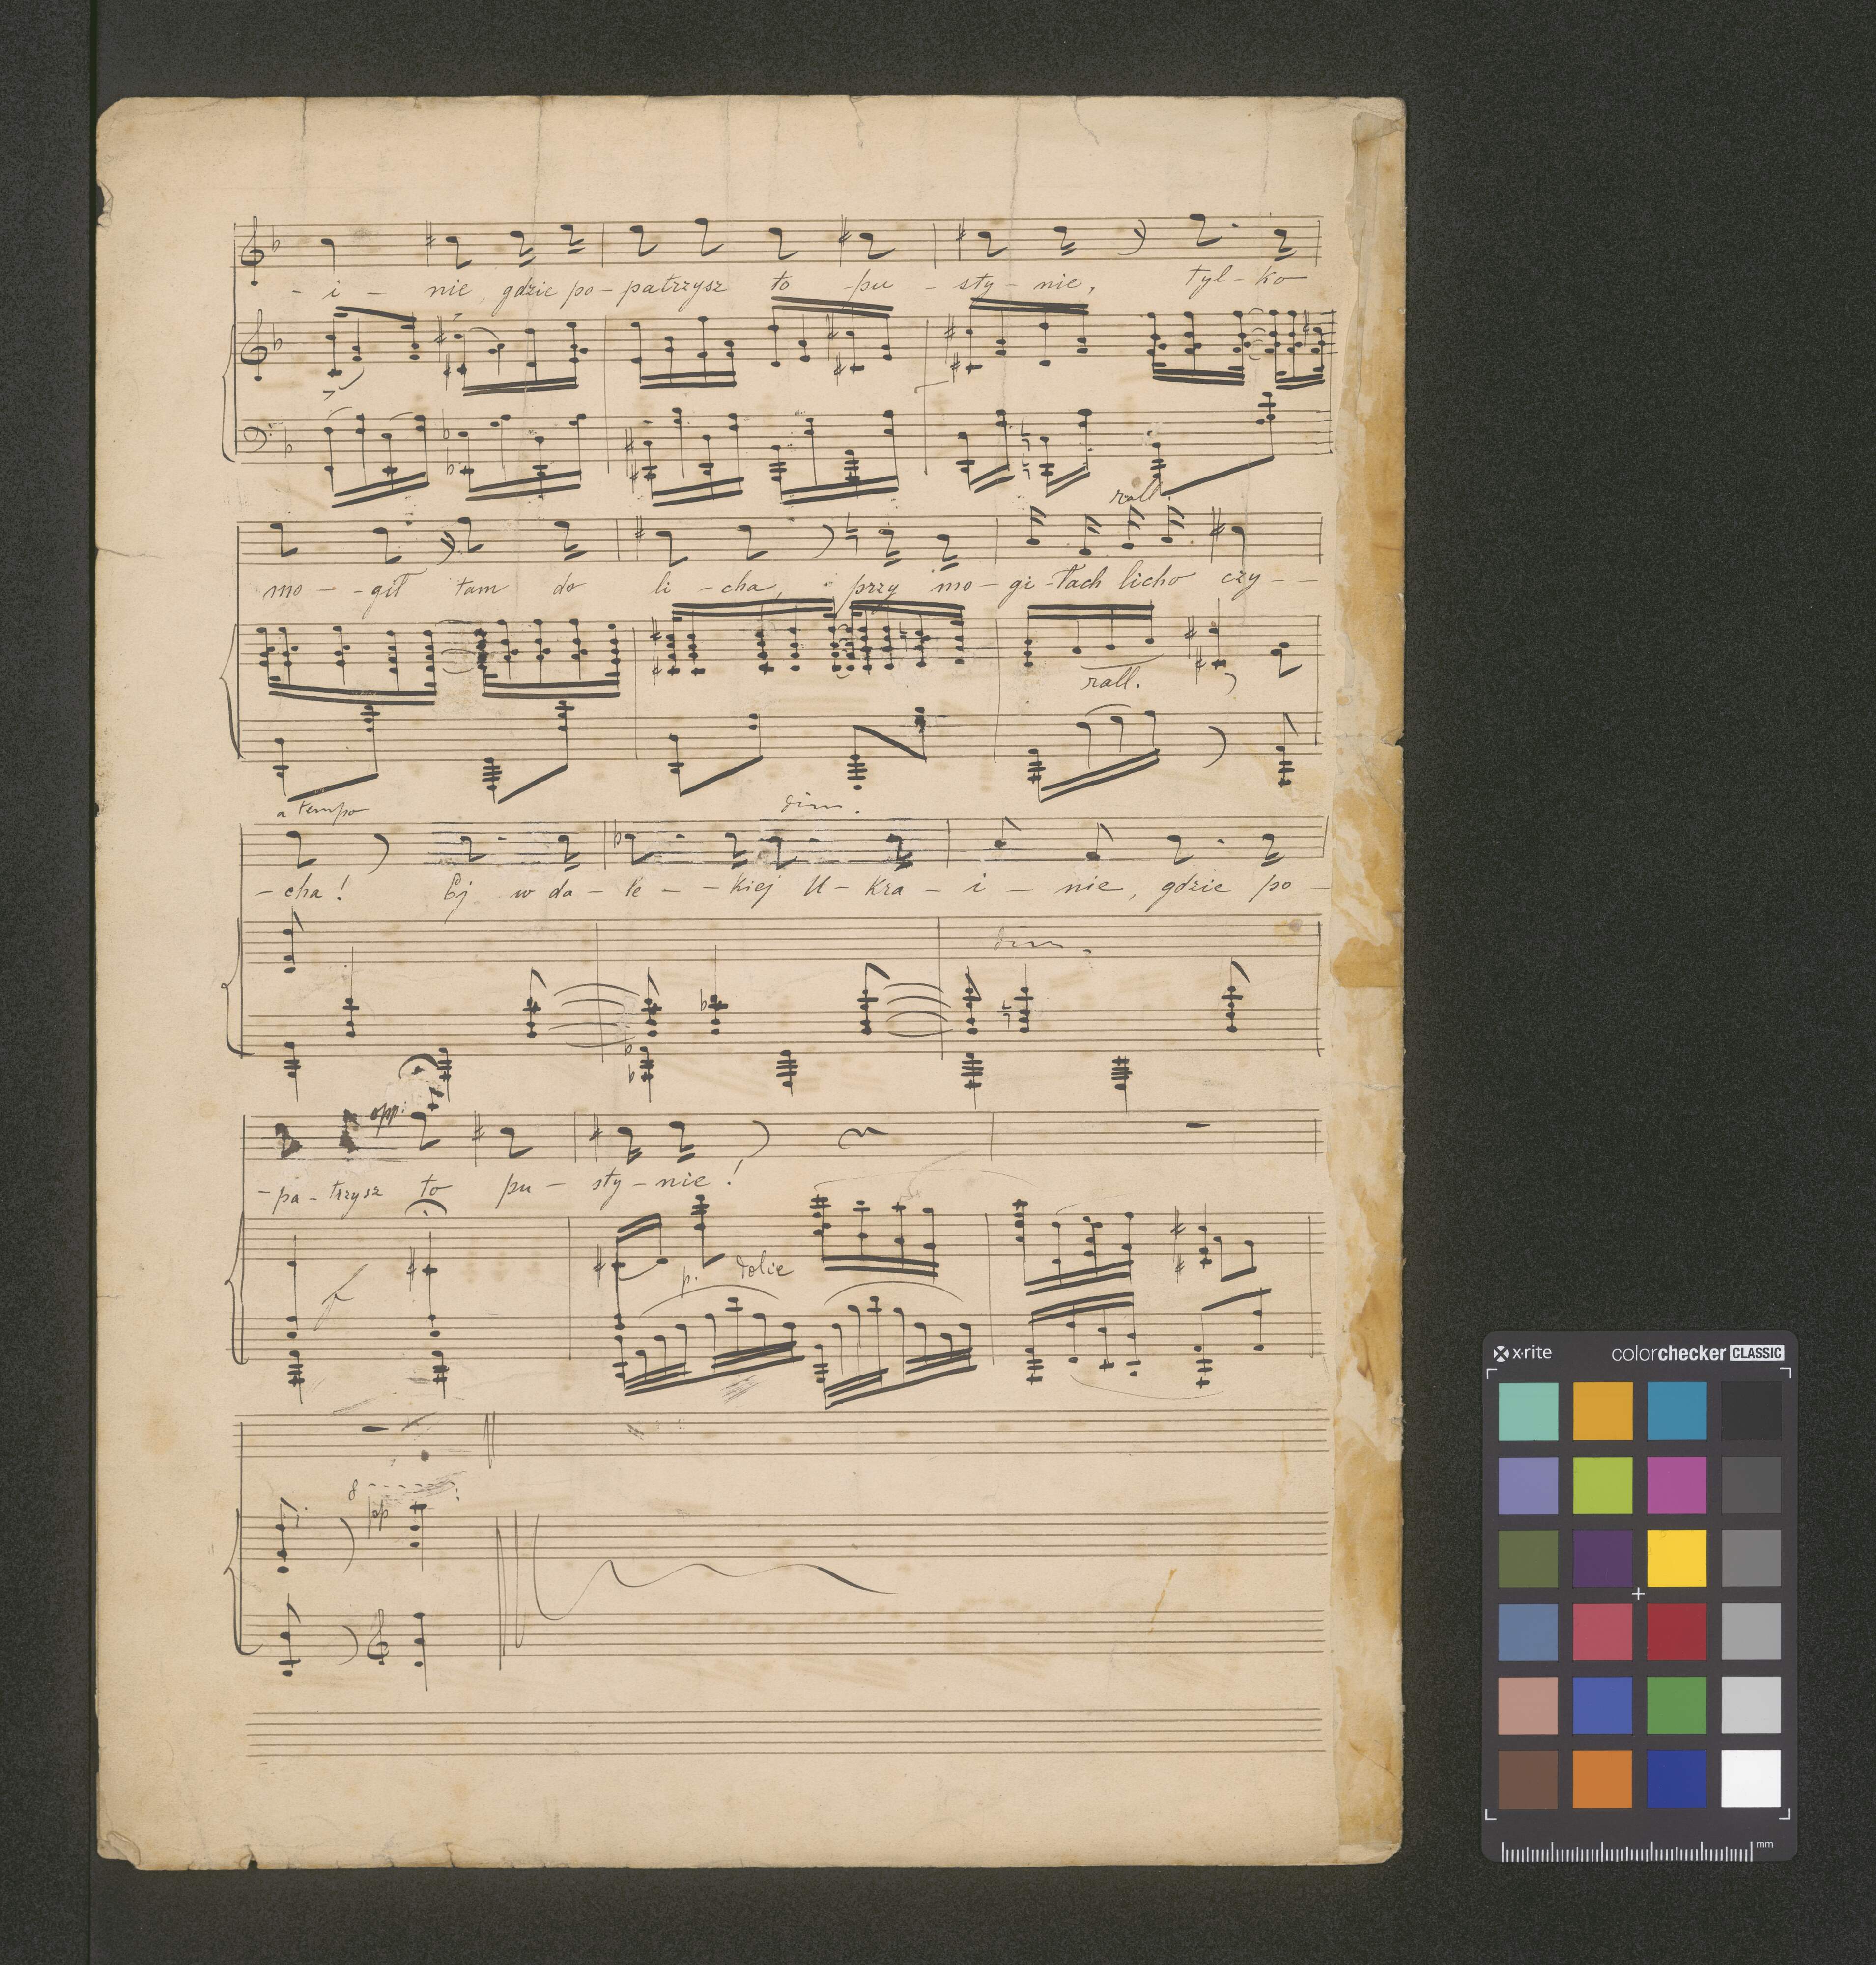 - i - nie, gdzie po - patrzysz to - pu - sty - nie, tyl - ko
rall.
mo - - gił tam do li - cha, przy mo - gi - łach licho czy - -
rall.
a tempo dim.
- cha! Ej w da - le - - kiej U - kra - i - nie, gdzie po -
dim.
opp:
- pa - trzysz to pu - sty - nie!
f p. dolce
8
pp
x·rite colorchecker CLASSIC
mm